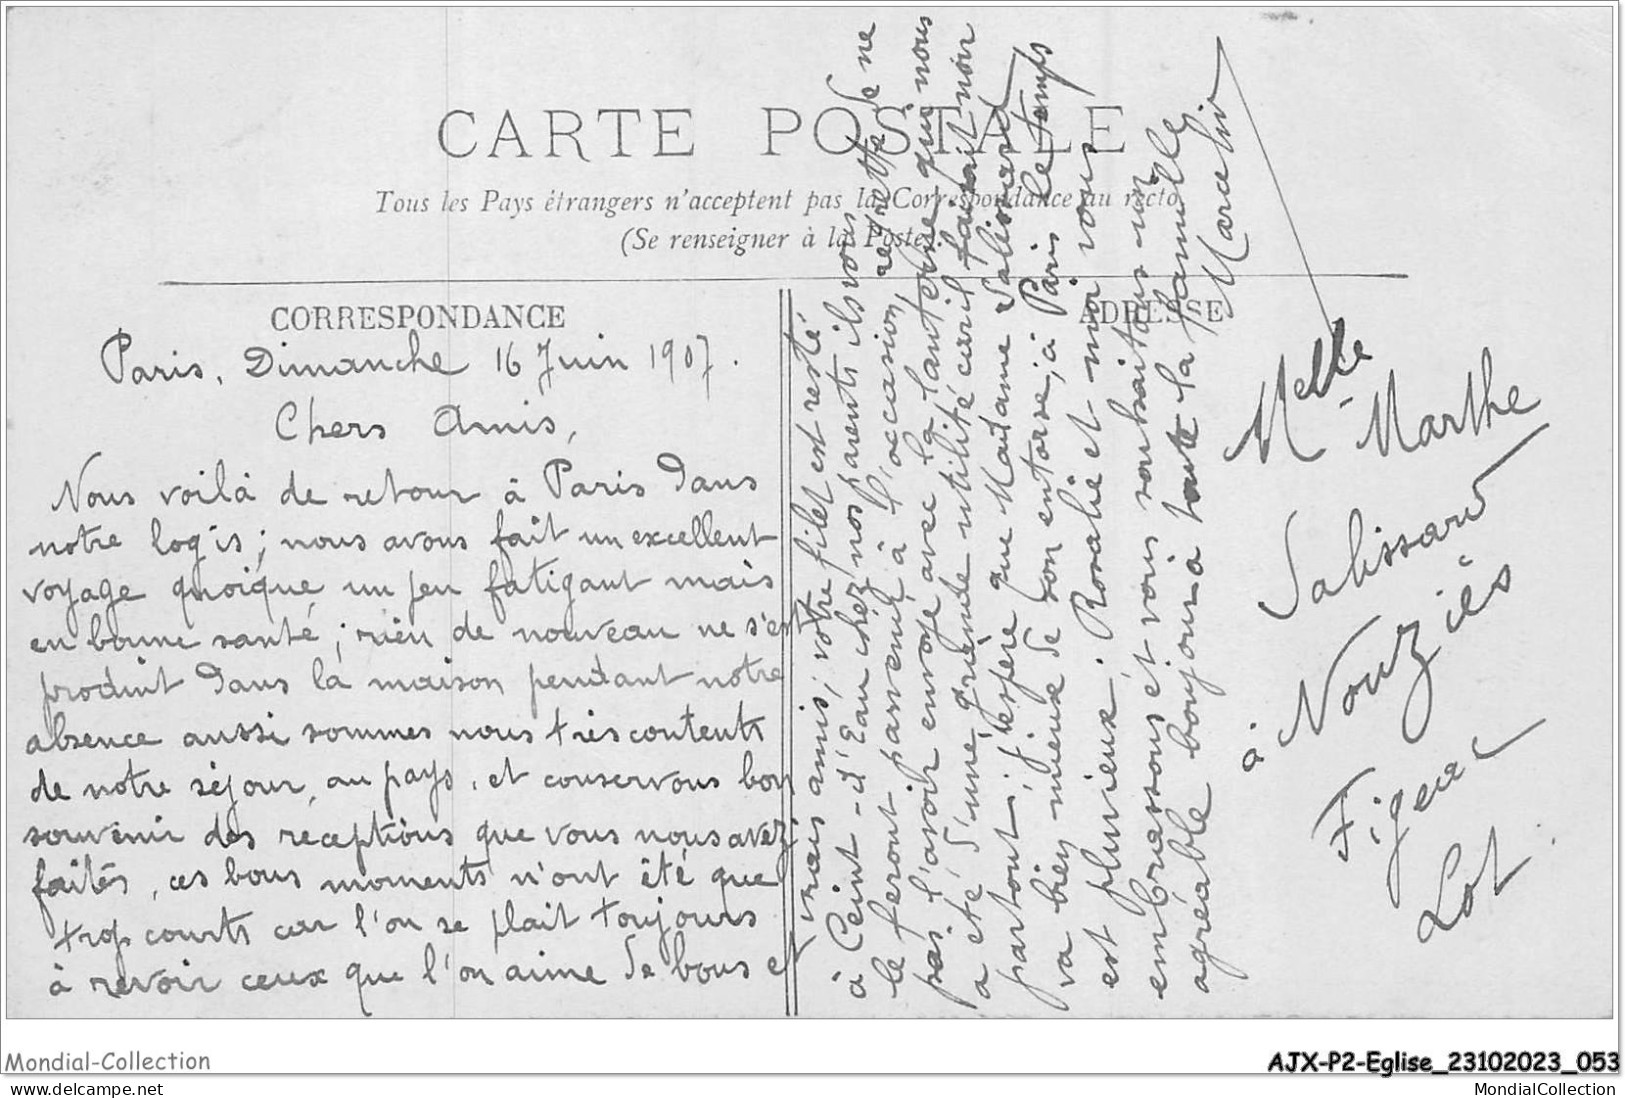 CARTE POSTALE
Tous les Pays étrangers n'acceptent pas la Correspondance au recto
(Se renseigner à la Poste).
CORRESPONDANCE
Paris, Dimanche 16 Juin 1907.
Chers Amis,
Nous voilà de retour à Paris dans
notre logis; nous avons fait un excellent
voyage quoique un peu fatigant mais
en bonne santé; rien de nouveau ne s'est
produit dans la maison pendant notre
absence aussi sommes nous très contents
de notre séjour, au pays, et conservons bon
souvenir des receptions que vous nous avez
faités, ces bons moments n'ont été que
trop courts car l'on se plait toujours
à revoir ceux que l'on aime de bons et
vrais amis; votre filet est resté
à Ceint-d'Eau chez nos parents ils vous
le feront parvenir à l'occasion, regrette de ne
pas l'avoir envoyé avec la lanterne qui nous
a été d'une grande utilité car il faisait noir
partout; j'espère que Madame Salissard
va bien mieux de son entorse; à Paris le temps
est pluvieux. Rosalie et moi vous
embrassons et vous souhaitons un
agréable bonjour à toute la famille
Marcelin
ADRESSE
Melle Marthe
Salissard
à Nouziès
Figeac
Lot
Mondial-Collection
AJX-P2-Eglise_23102023_053
www.delcampe.net
MondialCollection